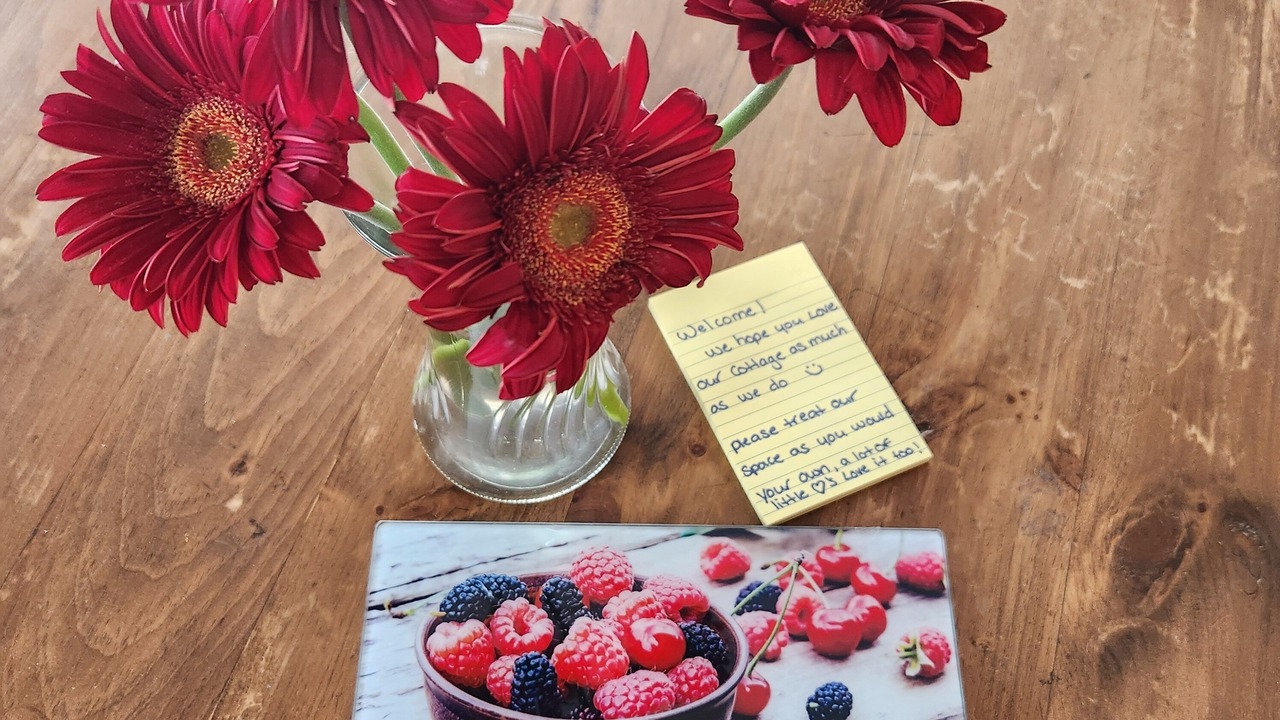 Welcome!
we hope you love
our cottage as much
as we do ☺
please treat our
space as you would
your own, a lot of
little ♡'s love it too!